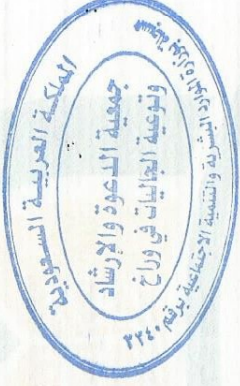 المملكة العربية السعودية
جمعية الدعوة والإرشاد
وتوعية الجاليات في وراخ
مسجلة بوزارة الموارد البشرية والتنمية الاجتماعية برقم ٢٢٤٠